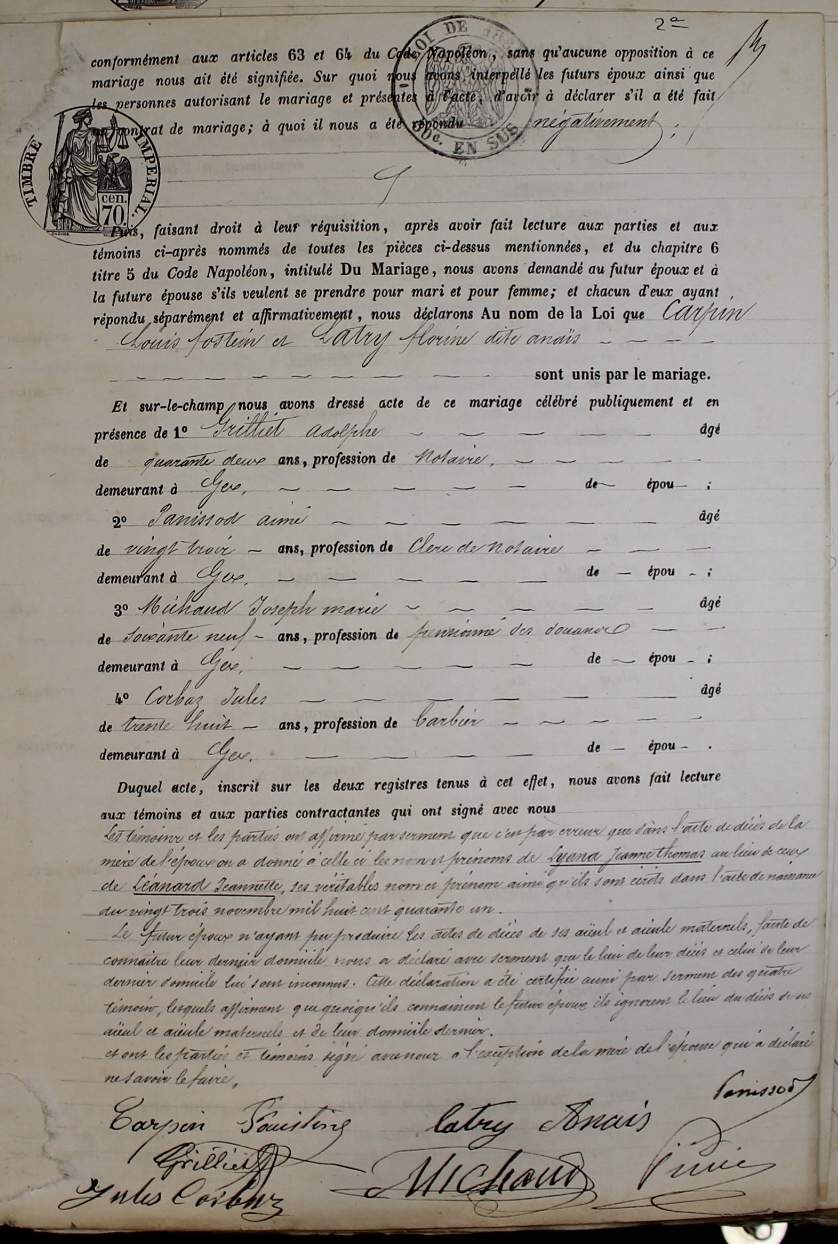 2ª
conformément aux articles 63 et 64 du Code Napoléon, sans qu'aucune opposition à ce
mariage nous ait été signifiée. Sur quoi nous avons interpellé les futurs époux ainsi que
les personnes autorisant le mariage et présentes à l'acte, d'avoir à déclarer s'il a été fait
un contrat de mariage; à quoi il nous a été répondu négativement;
TIMBRE IMPERIAL
cen. 70.
LOI DE
EN SUS
Puis, faisant droit à leur réquisition, après avoir fait lecture aux parties et aux
témoins ci-après nommés de toutes les pièces ci-dessus mentionnées, et du chapitre 6
titre 5 du Code Napoléon, intitulé Du Mariage, nous avons demandé au futur époux et à
la future épouse s'ils veulent se prendre pour mari et pour femme; et chacun d'eux ayant
répondu séparément et affirmativement, nous déclarons Au nom de la Loi que Carpin
Louis fostein et Latry florine dite anaïs
sont unis par le mariage.
Et sur-le-champ nous avons dressé acte de ce mariage célébré publiquement et en
présence de 1º Grilliet adolphe âgé
de quarante deux ans, profession de Notaire.
demeurant à Gex. de épou ;
2º Panissod aimé âgé
de vingt trois ans, profession de Clerc de Notaire
demeurant à Gex. de épou ;
3º Michaud Joseph marie âgé
de soixante neuf ans, profession de pensionné des douanes
demeurant à Gex. de épou ;
4º Corbaz Jules âgé
de trente huit ans, profession de barbier
demeurant à Gex. de épou .
Duquel acte, inscrit sur les deux registres tenus à cet effet, nous avons fait lecture
aux témoins et aux parties contractantes qui ont signé avec nous
Les témoins et les parties ont affirmé par serment que c'est par erreur que dans l'acte de décès de la
mère de l'époux on a donné à celle ci les nom et prénoms de Lyana Jeanne thomas au lieu de ceux
de Léanard Jeannette, ses véritables nom et prénom ainsi qu'ils sont écrits dans l'acte de naissance
du vingt trois novembre mil huit cent quarante un.
Le futur époux n'ayant pu produire les actes de décès de ses aïeul et aïeule maternels, faute de
connaître leur dernier domicile nous a déclaré avec serment que le lieu de leur décès et celui de leur
dernier domicile lui sont inconnus. Cette déclaration a été certifiée aussi par serment des quatre
témoins, lesquels affirment que quoiqu'ils connaissent le futur époux ils ignorent le lieu du décès de ses
aïeul et aïeule maternels et de leur domicile dernier.
et ont les parties et témoins signé avec nous à l'exception de la mère de l'épouse qui a déclaré
ne savoir le faire.
Panissod
Carpin Faustin Catry Anais
Grilliet Michaud
Jules Corbaz